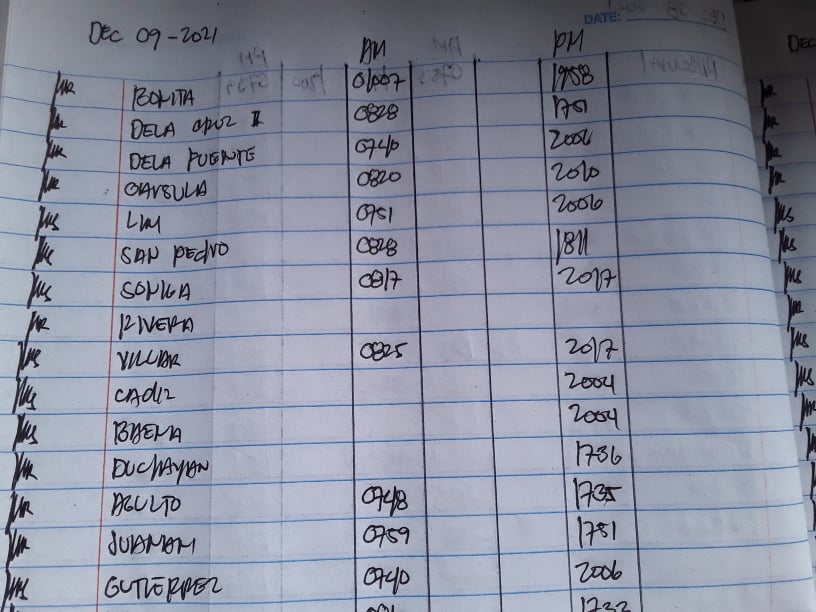 DATE:
DEC 09-2021
AM PM
Mr BONITA 1758
Mr DELA CRUZ II 0828 1751
Mr DELA PUENTE 0740 2006
Mr 0820 2010
Ms LIM 0751 2006
Ms SAN PEDRO 0828 1811
Ms SONGA 0817 2017
Mr RIVERA
Ms VILLAR 0825 2017
Ms CADIZ 2004
Ms BAEMA 2004
Mr DUCHAYAN 1736
Mr AGULTO 0748 1735
Mr 0759 1751
Ms GUTIERREZ 0740 2006
DEC